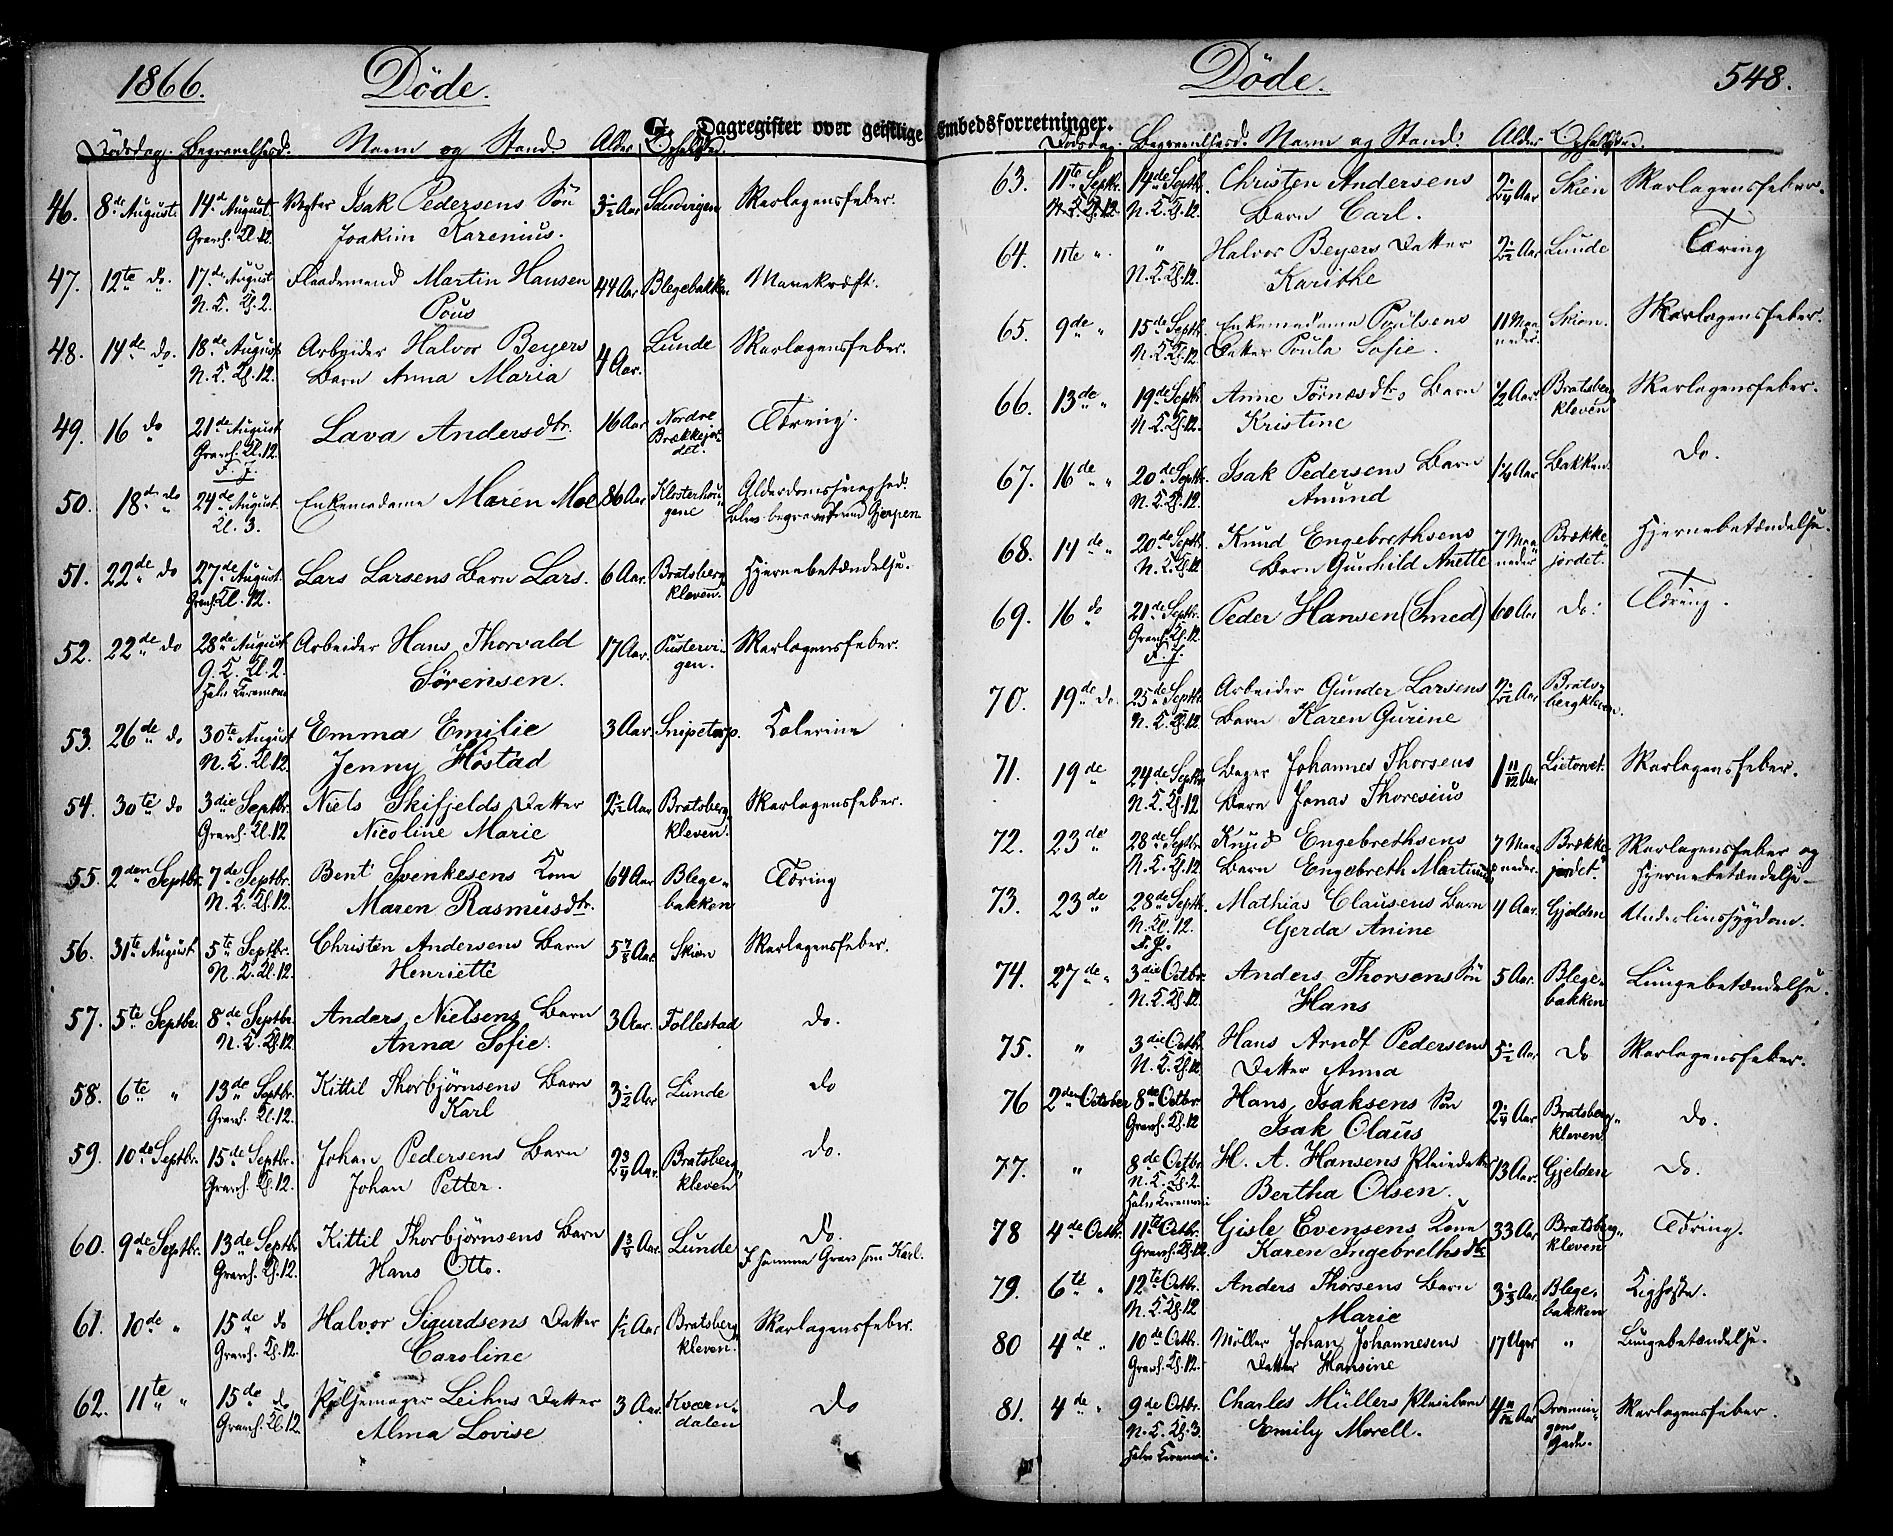 1866. Döde. Döde. 548.
G. Dagregister over geistlige Embedsforretninger.
Dödsdag. Begravelsesd. Navn og Stand. Alder. Opholdsted.
46. 8de August. 14de August. Isak Pedersens Sön 3½ Aar Sandvigen Skarlagensfeber.
Gravh. Kl. 12. Joakim Karenius.
47. 12te do. 17de August Flaademand Martin Hansen 44 Aar Blegebakken Mavekræft.
N. K. Kl. 2. Pous
48. 14de do. 18de August Arbeider Halvor Beyers 4 Aar. Lunde Skarlagensfeber.
N. K. Kl. 12. Barn Anna Maria
49. 16 do 21de August Lava Andersdtr. 16 Aar Nordre Tæring.
Gravh. Kl. 12. Brækkejor-
F. J. det.
50. 18de do 24de August Enkemadame Maren Moe 86 Aar Klosterhou- Alderdomssvaghed.
Kl. 3. gene Blev begravet ved Gjerpen
51. 22de do 27de August. Lars Larsens Barn Lars. 6 Aar. Bratsberg Hjernebetændelse.
Gravh. Kl. 12. kleven.
52. 22de do 28de August Arbeider Hans Thorvald 17 Aar. Pustervi- Skarlagensfeber.
G. K. Kl. 2. Sörensen. gen.
Halv Ceremoni
53. 26de do 30te August Emma Emilie 3 Aar. Snipetorp. Kolerine
N. K. Kl. 12. Jenny Höstad
54. 30te do 3die Septbr. Niels Skifjelds Datter 2½ Aar Bratsberg Skarlagensfeber.
Gravh. Kl. 12 Nicoline Marie kleven.
55. 2den Septbr. 7de Septbr. Bent Svenkesens Kone 64 Aar Blege- Tæring
N. K. Kl. 12. Maren Rasmusdtr. bakken
56. 31te August 5te Septbr. Christen Andersens Barn 5⅞ Aar Skien Skarlagensfeber.
N. K. Kl. 12. Henriette
57. 5te Septbr. 8de Septbr. Anders Nielsens Barn 3 Aar. Follestad do.
N. K. Kl. 12 Anna Sofie.
58. 6te " 13de Septbr Kittil Thorbjörnsens Barn 3½ Aar Lunde do
Gravh. Kl. 12. Karl
59. 10de Septbr. 15de Septbr. Johan Pedersens Barn 2¾ Aar. Bratsberg do.
Gravh. Kl. 12. Johan Petter. kleven
60. 9de Septbr. 13de Septbr Kittil Thorbjörnsens Barn 1¾ Aar. Lunde Do.
Gravh. Kl. 12. Hans Otto. I samme Grav som Karl.
61. 10de " 15de do Halvor Sigurdsens Datter ½ Aar Bratsberg Skarlagensfeber.
Gravh. Kl. 12. Caroline kleven.
62. 11te " 15de do Leihns Datter 3 Aar. Kværn- Do
Gravh. Kl. 12. Alma Lovise dalen
Dödsdag. Begravelsesd. Navn og Stand. Alder Opholdsted.
63. 11te Septbr. 14de Septbr. Christen Andersens 2¼ Aar Skien Skarlagensfeber.
N. K. Kl. 12. N. K. Kl. 12. Barn Carl.
64. 11te " " Halvor Beyers Datter 2½ Aar Lunde Tæring
N. K. Kl. 12. Karithe
65. 9de " 15de Septbr. Enkemadame Poulsens 11 Maa- Skien. Skarlagensfeber.
N. K. Kl. 12 Datter Poula Sofie. neder.
66. 13de " 19de Septbr Anne Törnæsdtrs Barn ½ Aar Bratsberg Skarlagensfeber.
N. K. Kl. 12. Kristine kleven
67. 16de " 20de Septbr. Isak Pedersens Barn 1¼ Aar Bakken Do.
N. K. Kl. 12. Amund
68. 14de " 20de Septbr. Knud Engebrethsens 7 Maa- Brække- Hjernebetændelse.
N. K. Kl. 12 Barn Gunhild Anette neder jordet.
69. 16 do 21de Septbr. Peder Hansen (Smed) 60 Aar do. Tæring.
Gravh. Kl. 12
F. J.
70. 19de do. 25de Septbr. Arbeider Gunder Larsens 2½ Aar Brats-
N. K. Kl. 12. Barn Karen Gurine bergkleven.
71. 19de 24de Septbr. Bager Johannes Thorsens 1 11/12 Aar Lietorvet. Skarlagensfeber.
N. K. Kl. 12 Barn Jonas Thoresius
72. 23de 28de Septbr Knud Engebrethsens 7 Maa- Brække- Skarlagensfeber og
N. K. Kl. 12. Barn Engebreth Martinus neder. jordet. Hjernebetændelse
73. 23de " 28de Septbr. Mathias Clausens Barn 4 Aar. Gjelden Underlivssygdom.
N. Kl. 12. Gerda Anine
F. J.
74. 27de " 3die Octbr. Anders Thorsens Sön 5 Aar. Blege- Lungebetændelse.
N. K. Kl. 12. Hans bakken
75. " 3die Octbr. Hans Arndt Pedersens 5½ Aar do Skarlagensfeber.
N. K. Kl. 12 Datter Anna
76 2den October 8de Octbr. Hans Isaksens Sön 2¼ Aar Bratsberg- do.
Gravh. Kl. 12 Isak Olaus kleven
77. " 8de Octbr H. A. Hansens Pleiedatter 13 Aar. Gjelden Do.
N. K. Kl. 2. Bertha Olsen.
Halv Ceremoni
78 4de Octbr. 11te Octbr. Gisle Evensens Kone 33 Aar Bratsberg- Tæring.
Gravh. Kl. 12. Karen Ingebrethsdtr kleven
79. 6te " 12te Octbr. Anders Thorsens Barn 3⅓ Aar. Blege- Kighoste.
N. K. Kl. 12 Marie bakken
80 4de " 10de Octbr. Möller Johan Johannesens 17 Uger " Lungebetændelse.
Gravh. Kl. 12. Datter Hansine
81. 4de " 9de Octbr. Charles Müllers Pleiebarn 4 Aar Dronnin- Skarlagensfeber.
N. K. Kl. 3. Emily Morell. gens
Halv Ceremoni. Gade.